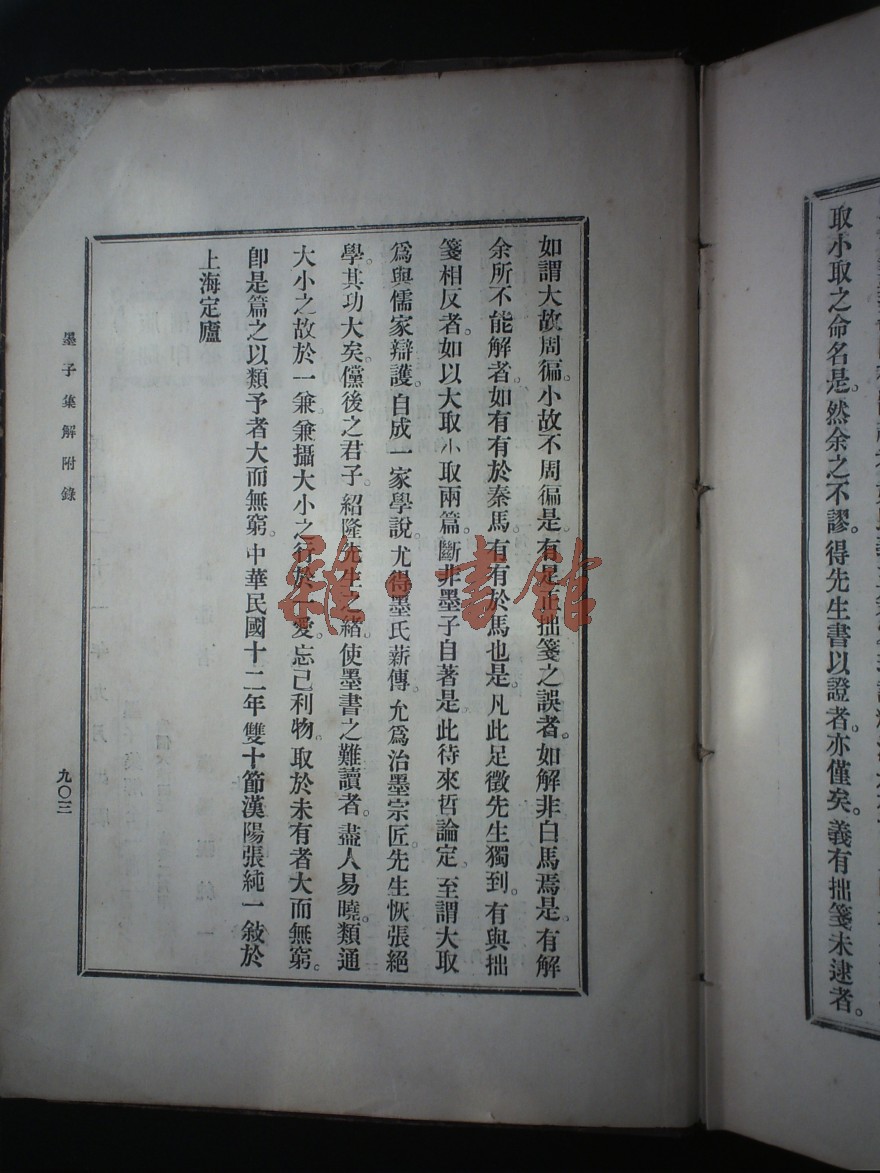 取小取之命名是。然余之不謬。得先生書以證者。亦僅矣。義有拙箋未逮者。
如謂大故周徧。小故不周徧是。有足正拙箋之誤者。如解非白馬焉是。有解
余所不能解者。如有有於秦馬。有有於馬也是。凡此足徵先生獨到。有與拙
箋相反者。如以大取小取兩篇。斷非墨子自著是。此待來哲論定。至謂大取
爲與儒家辯護。自成一家學說。尤得墨氏薪傳。允爲治墨宗匠。先生恢張絕
學。其功大矣。儻後之君子。紹隆先生之緒。使墨書之難讀者。盡人易曉。類通
大小之故於一兼。兼攝大小之行於一愛。忘己利物。取於未有者大而無窮。
卽是篇之以類予者大而無窮。中華民國十二年雙十節漢陽張純一敍於
上海定廬
墨子集解附錄
九〇三
雜·書館